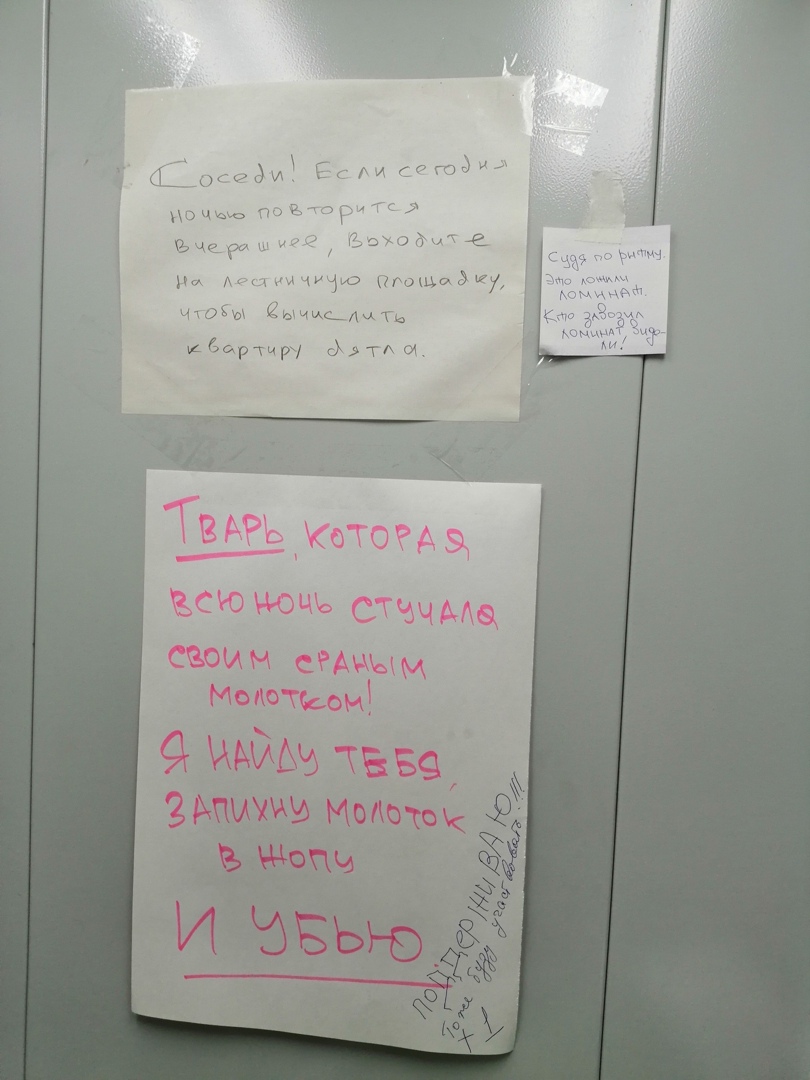 Соседи! Если сегодня
ночью повторится
вчерашнее, выходите
на лестничную площадку,
чтобы вычислить
квартиру дятла.
Судя по ритму.
Это ложили
ломинат.
Кто завозил
ломинат видо-
ли!
Тварь, которая
всю ночь стучала
своим сраным
молотком!
Я найду тебя,
запихну молоток
в жопу
и убью
ПОДДЕРЖИВАЮ!!!
Тоже буду участвовать!